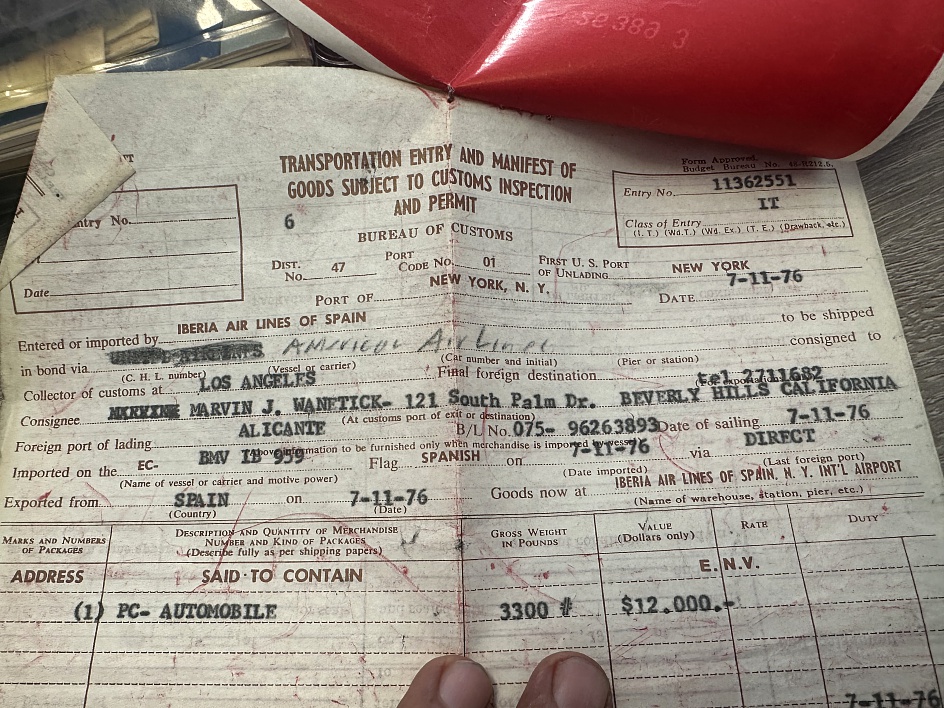 TRANSPORTATION ENTRY AND MANIFEST OF
GOODS SUBJECT TO CUSTOMS INSPECTION
AND PERMIT
6
BUREAU OF CUSTOMS
Form Approved.
Budget Bureau No.
Entry No. 11362551
IT
Class of Entry
(I. T.) (Wd. T.) (Wd. Ex.) (T. E.) (Drawback, etc.)
Entry No.
Date
DIST. No. 47 PORT CODE No. 01 FIRST U. S. PORT OF UNLADING NEW YORK
PORT OF NEW YORK, N. Y. DATE 7-11-76
Entered or imported by IBERIA AIR LINES OF SPAIN to be shipped
in bond via American Air Lines consigned to
(C. H. L. number) (Vessel or carrier) (Car number and initial) (Pier or station)
Collector of customs at LOS ANGELES Final foreign destination tel 2711682
(For exportations)
Consignee MARVIN J. WANETICK- 121 South Palm Dr. BEVERLY HILLS CALIFORNIA
(At customs port of exit or destination)
Foreign port of lading ALICANTE B/L No. 075- 96263893 Date of sailing 7-11-76
(Above information to be furnished only when merchandise is imported by vessel)
Imported on the EC- BMV IB 959 Flag SPANISH on 7-11-76 via DIRECT
(Name of vessel or carrier and motive power) (Date imported) (Last foreign port)
Exported from SPAIN on 7-11-76 Goods now at IBERIA AIR LINES OF SPAIN, N. Y. INT'L AIRPORT
(Country) (Date) (Name of warehouse, station, pier, etc.)
MARKS AND NUMBERS OF PACKAGES
DESCRIPTION AND QUANTITY OF MERCHANDISE
NUMBER AND KIND OF PACKAGES
(Describe fully as per shipping papers)
GROSS WEIGHT IN POUNDS
VALUE (Dollars only)
RATE
DUTY
ADDRESS SAID TO CONTAIN E. N. V.
(1) PC- AUTOMOBILE 3300 # $12.000.-
7-11-76